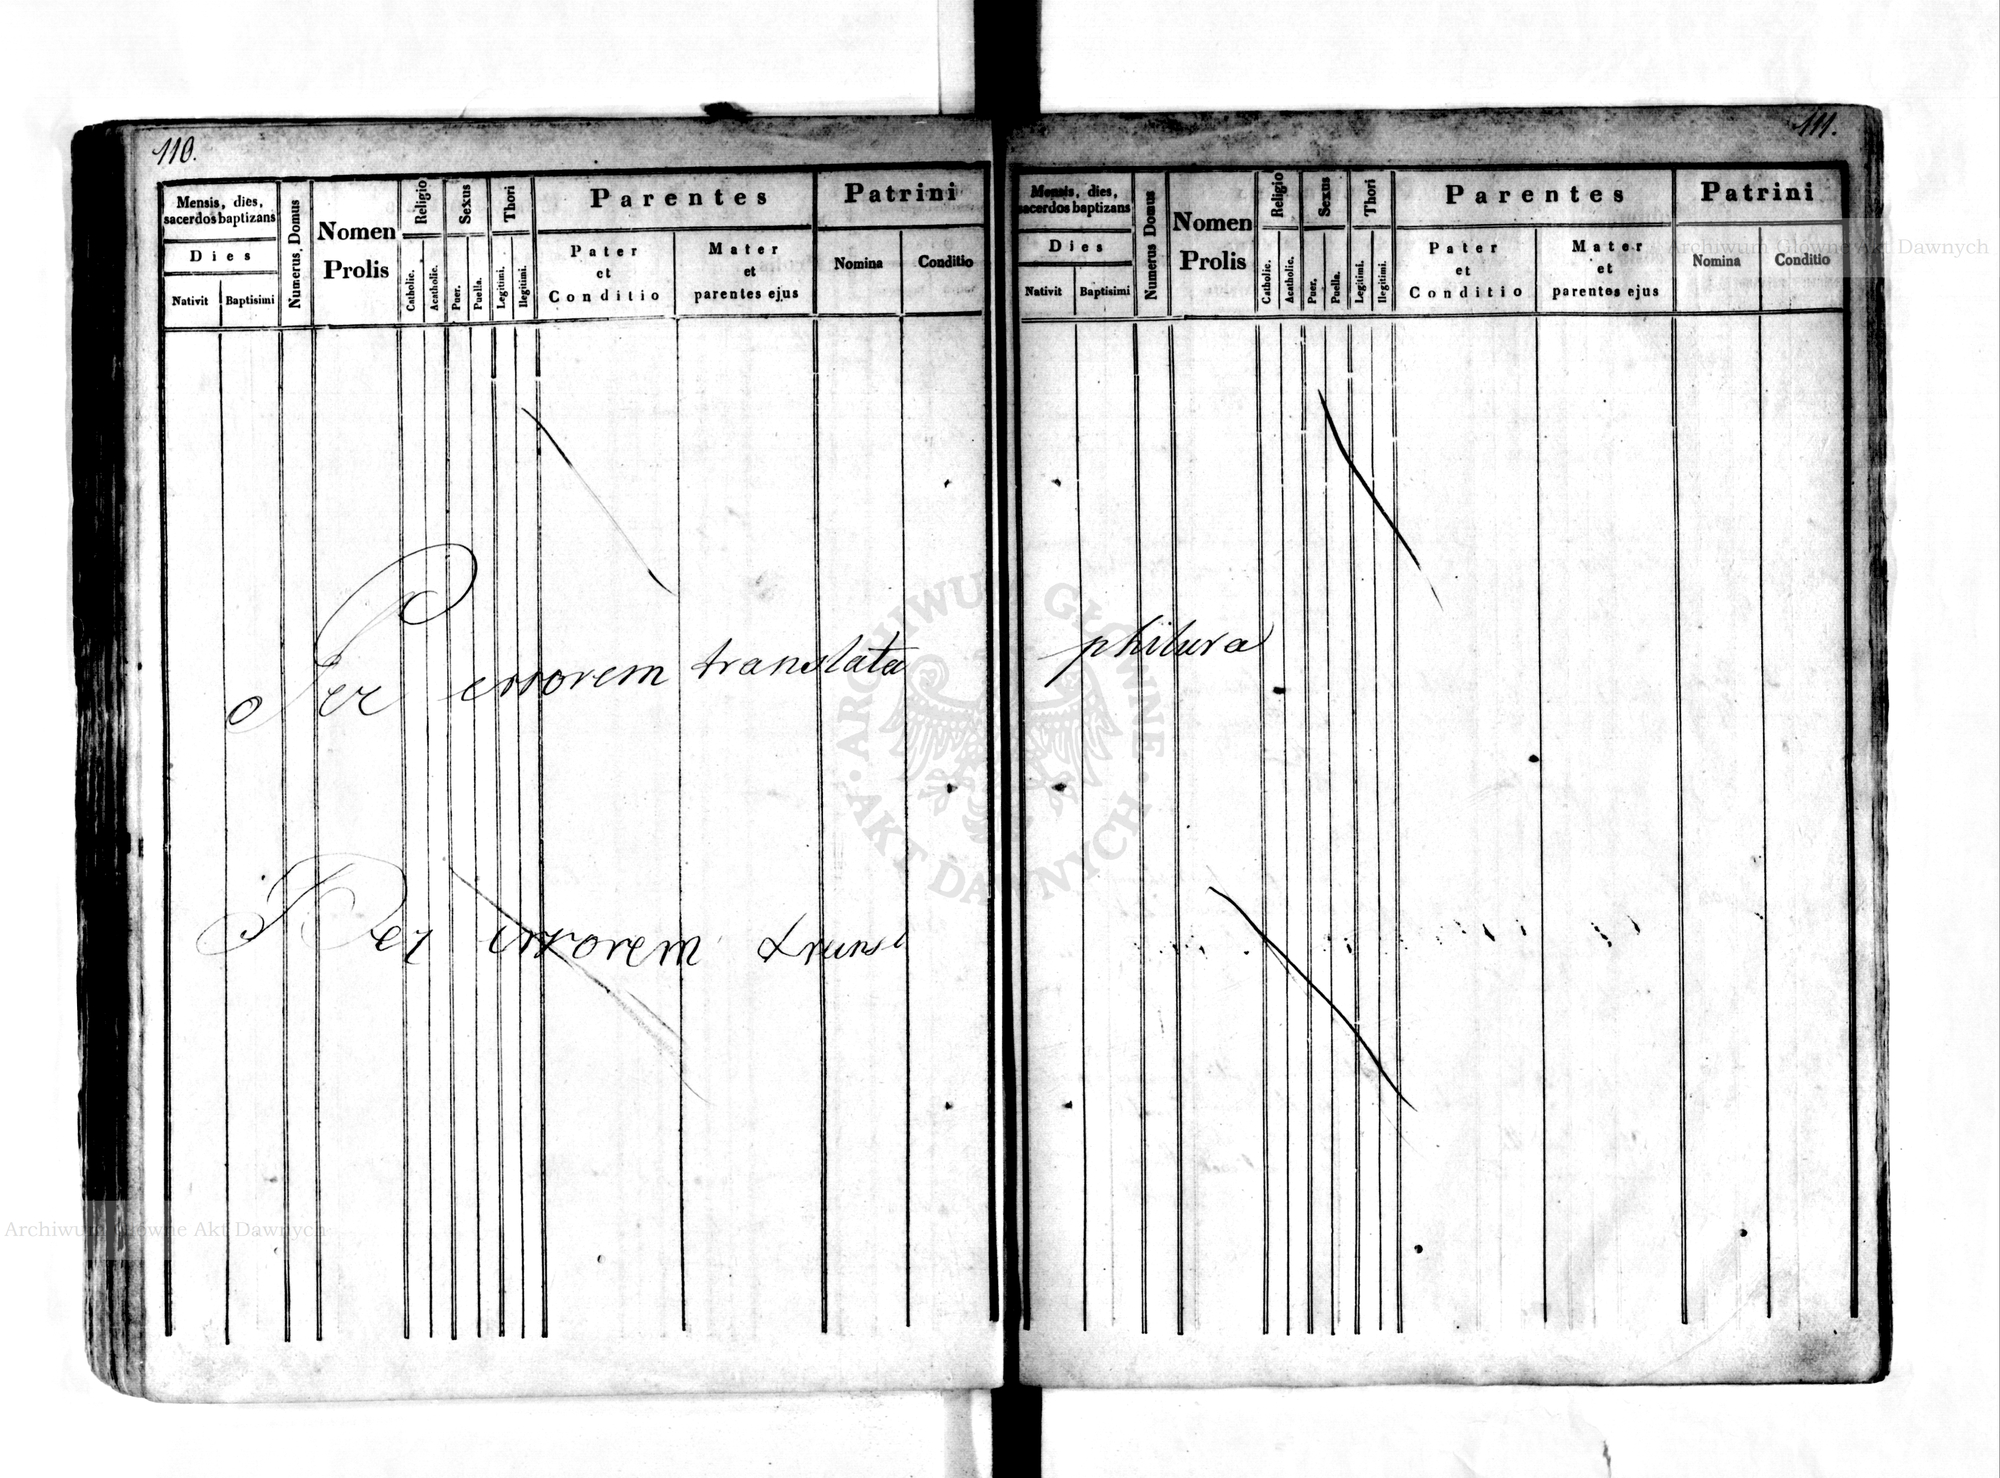 110.
Mensis, dies, sacerdos baptizans
Dies
Nativit Baptisimi
Numerus Domus
Nomen Prolis
Religio
Catholic. Acatholic.
Sexus
Puer. Puella.
Thori
Legitimi. Ilegitimi.
Parentes
Pater et Conditio
Mater et parentes ejus
Patrini
Nomina Conditio
Per errorem translata
Per errorem
111.
Mensis, dies, sacerdos baptizans
Dies
Nativit Baptisimi
Numerus Domus
Nomen Prolis
Religio
Catholic. Acatholic.
Sexus
Puer. Puella.
Thori
Legitimi. Ilegitimi.
Parentes
Pater et Conditio
Mater et parentes ejus
Patrini
Nomina Conditio
philura
Archiwum Główne Akt Dawnych
ARCHIWUM GŁÓWNE AKT DAWNYCH
Archiwum Główne Akt Dawnych